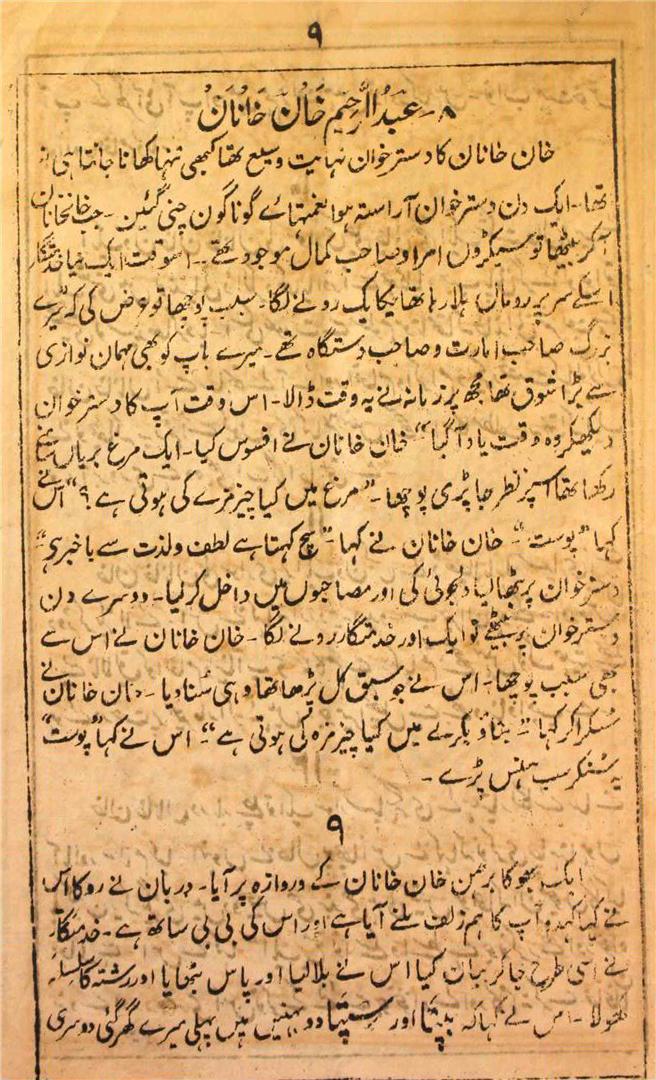 ۹
۸۔ عَبدُ الرَّحِیم خَان خَانَانْ
خان خانان کا دسترخوان نہایت وسیع تھا کبھی تنہا کھانا جانتا ہی نہ
تھا۔ ایک دن دسترخوان آراستہ ہوا نعمتہاے گوناگون چنی گئین۔ جب خانخانان
آکر بیٹھا تو سیکڑوں امرا و صاحب کمال موجود تھے۔ اسوقت ایک نیا خدمتگار
اسکے سر پر رومال ہلا رہا تھا یکایک رونے لگا۔ سبب پوچھا تو عرض کی کہ میرے
بزرگ صاحب امارت و صاحب دستگاہ تھے۔ میرے باپ کو بھی مہمان نوازی
سے بڑا شوق تھا مجھ پر زمانہ نے یہ وقت ڈالا۔ اس وقت آپ کا دسترخوان
دیکھکر وہ وقت یاد آگیا“ خان خانان نے افسوس کیا۔ ایک مرغ بریاں سامنے
رکھا تھا اسپر نظر جا پڑی پوچھا۔ ”مرغ میں کیا چیز مزے کی ہوتی ہے؟“ اس نے
کہا ”پوست“۔ خان خانان نے کہا ”سچ کہتا ہے لطف و لذت سے باخبر ہی“
دسترخوان پر بٹھا لیا دلجوئی کی اور مصاحبوں میں داخل کر لیا۔ دوسرے دن
دسترخوان پر بیٹھے تو ایک اور خدمتگار رونے لگا۔ خان خانان نے اس سے
بھی سبب پوچھا۔ اس نے جو سبق کل پڑھا تھا وہی سُنا دیا۔ خان خانان نے
مُسکرا کر کہا ”بتاؤ بکرے میں کیا چیز مزہ کی ہوتی ہے“۔ اس نے کہا ”پوست“
یہ سُنکر سب ہنس پڑے۔
۹
ایک بھوکا برہمن خان خانان کے دروازہ پر آیا۔ دربان نے روکا اس
نے کہا کہدو آپ کا ہم زلف ملنے آیا ہے اور اس کی بی بی ساتھ ہے۔ خدمتگار
نے اسی طرح جاکر بیان کیا اس نے بلا لیا اور پاس بٹھایا اور رشتہ کا سلسلہ
کھولا۔ اس نے کہا کہ بپتا اور سنپتا دو بہنیں ہیں پہلی میرے گھر گئی دوسری